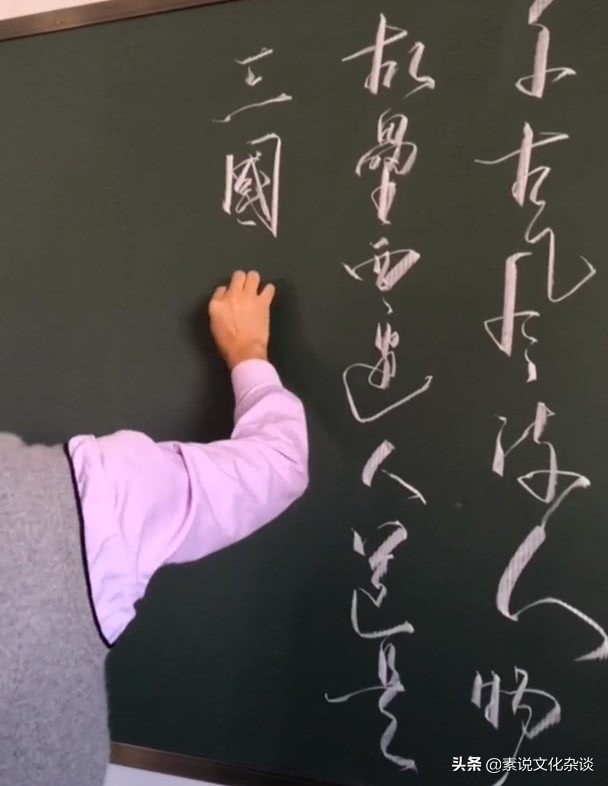 千古风流人物
故壘西邊人道是
三國
头条 @素说文化杂谈